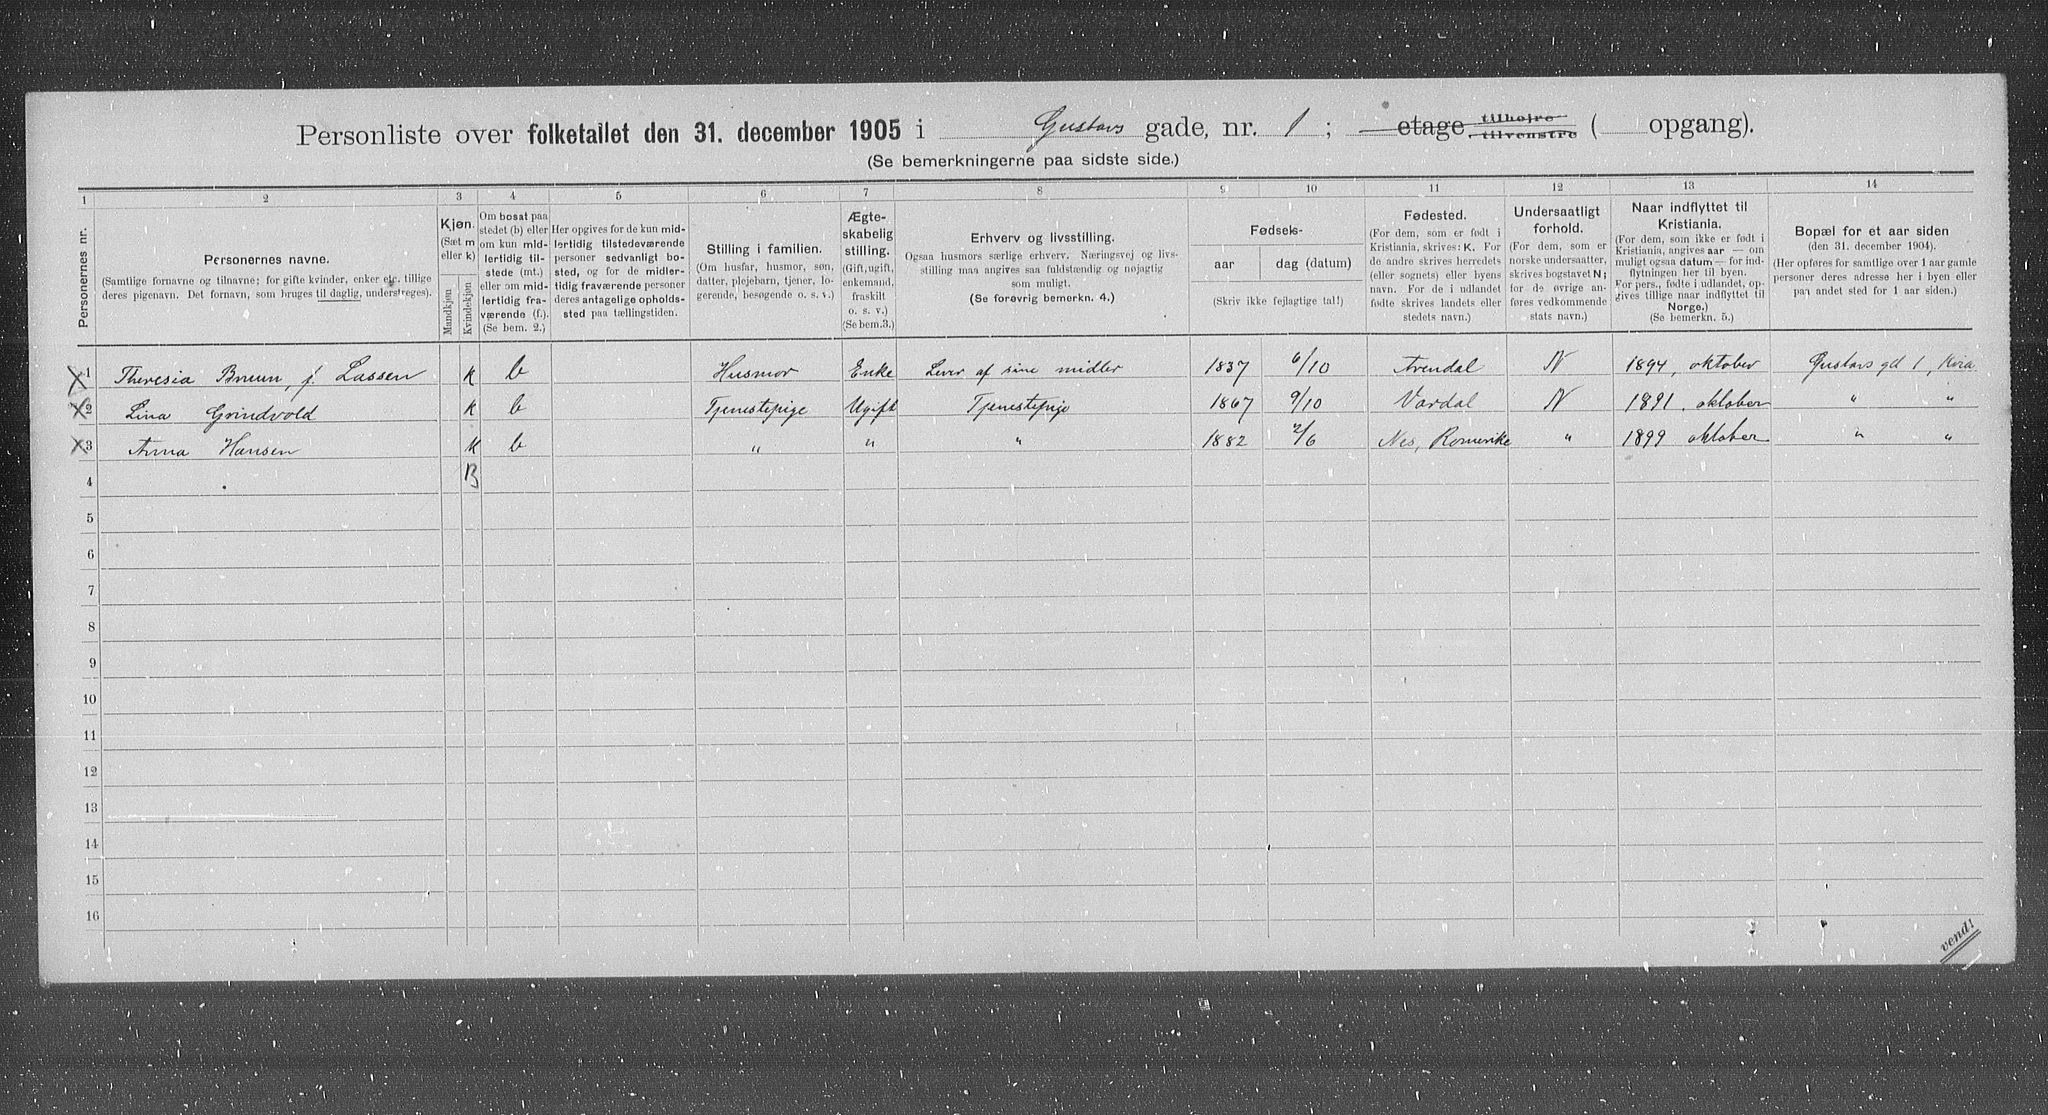 Personliste over folketallet den 31. december 1905 i Gustavs gade, nr. 1 ; etage tilhøjre tilvenstre ( opgang).
(Se bemerkningerne paa sidste side.)
1 2 3 4 5 6 7 8 9 10 11 12 13 14
Personernes nr.
Personernes navne.
(Samtlige fornavne og tilnavne; for gifte kvinder, enker etc. tillige
deres pigenavn. Det fornavn, som bruges til daglig, understreges).
Kjøn.
(Sæt m
eller k)
Mandkjøn
Kvindekjøn
Om bosat paa
stedet (b) eller
om kun midlertidig tilstede (mt.)
eller om midlertidig fraværende (f.).
(Se bem. 2.)
Her opgives for de kun midlertidig tilstedeværende
personer sedvanlig bosted, og for de midlertidig fraværende personer
deres antagelige opholdssted paa tællingstiden.
Stilling i familien.
(Om husfar, husmor, søn,
datter, plejebarn, tjener, logerende, besøgende o. s. v.)
Ægteskabelig
stilling.
(Gift, ugift,
enkemand,
fraskilt
o. s. v.)
(Se bem.3.)
Erhverv og livsstilling.
Ogsaa husmors særlige erhverv. Næringsvej og livsstilling maa angives saa fuldstændig og nøjagtig
som muligt.
(Se forøvrig bemerkn. 4.)
Fødsels-
aar dag (datum)
(Skriv ikke fejlagtige tal!)
Fødested.
(For dem, som er født i
Kristiania, skrives: K. For
de andre skrives herredets
(eller sognets) eller byens
navn. For de i udlandet
fødte skrives landets eller
stedets navn.)
Undersaatligt
forhold.
(For dem, som er
norske undersaatter,
skrives bogstavet N;
for de øvrige anføres vedkommende
stats navn.)
Naar indflyttet til
Kristiania.
(For dem, som ikke er født i
Kristiania, angives aar — om
muligt ogsaa datum — for indflytningen her til byen.
For pers., fødte i udlandet, opgives tillige naar indflyttet til
Norge.)
(Se bemerkn. 5.)
Bopæl for et aar siden
(den 31. december 1904).
(Her opføres for samtlige over 1 aar gamle
personer deres adresse her i byen eller
paa andet sted for 1 aar siden.)
1 Theresia Bruun, f. Lassen k b Husmor Enke Lever af sine midler 1837 6/10 Arendal N 1894, oktober Gustavs gd 1, Kria
2 Lina Grindvold k b Tjenestepige Ugift Tjenestepige 1867 9/10 Vardal N 1891, oktober " "
3 Anna Hansen k b " " " 1882 2/6 Nes, Romerike " 1899 oktober " "
4 B
5
6
7
8
9
10
11
12
13
14
15
16
vend!